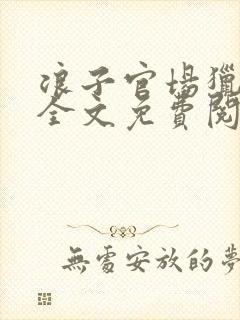 浪子官場獵
全文免費閱
無處安放的夢